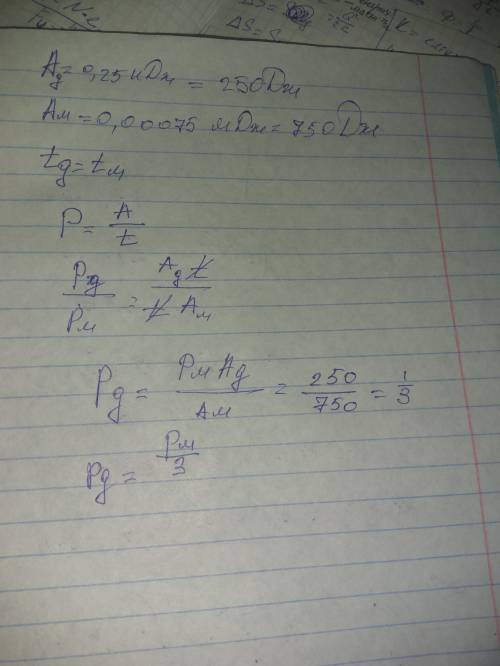 ΔS=
K=
ΔS=
Aд=0,25кДж = 250Дж
Aм=0,00075 мДж=750Дж
tд=tм
P= A/t
Pд/Pм = Aд t/t Aм
Pд = PмAд/Aм = 250/750 = 1/3
Pд = Pм/3